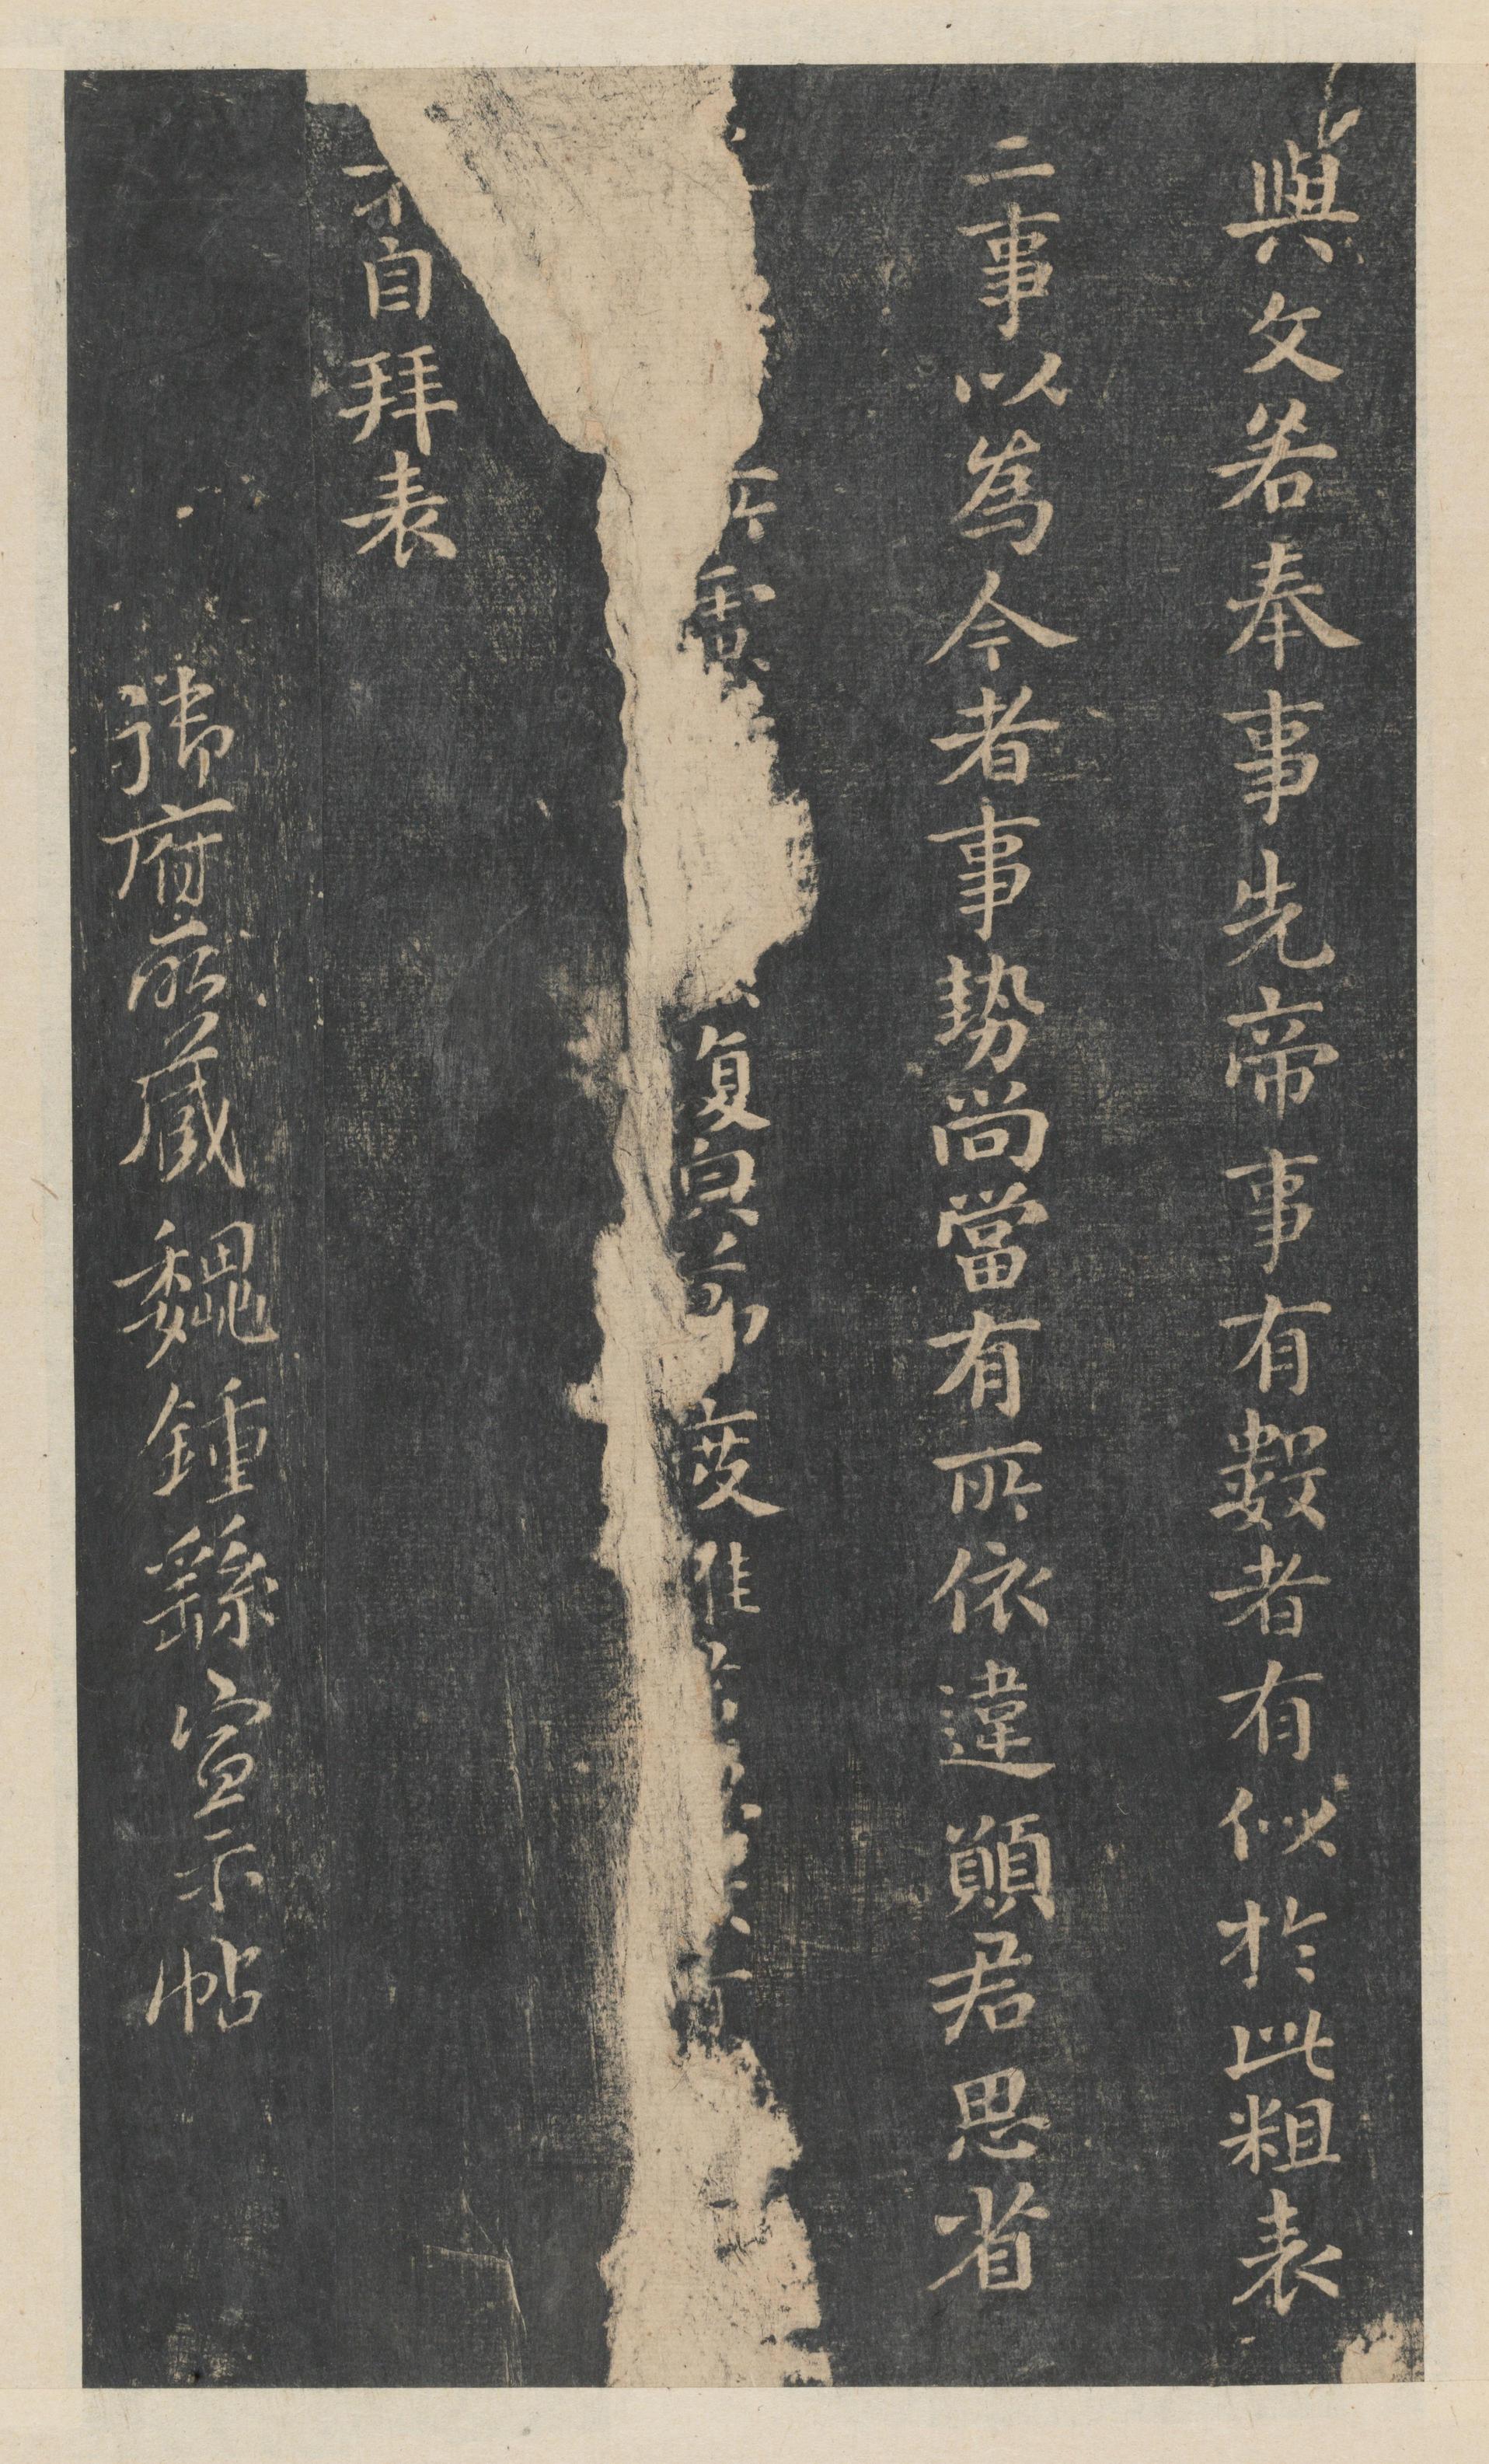 與文若奉事先帝事有數者有似於此粗表
二事以為今者事勢尚當有所依違願君思省
所 復與節度唯
自拜表
禕府所藏魏鍾繇宣示帖